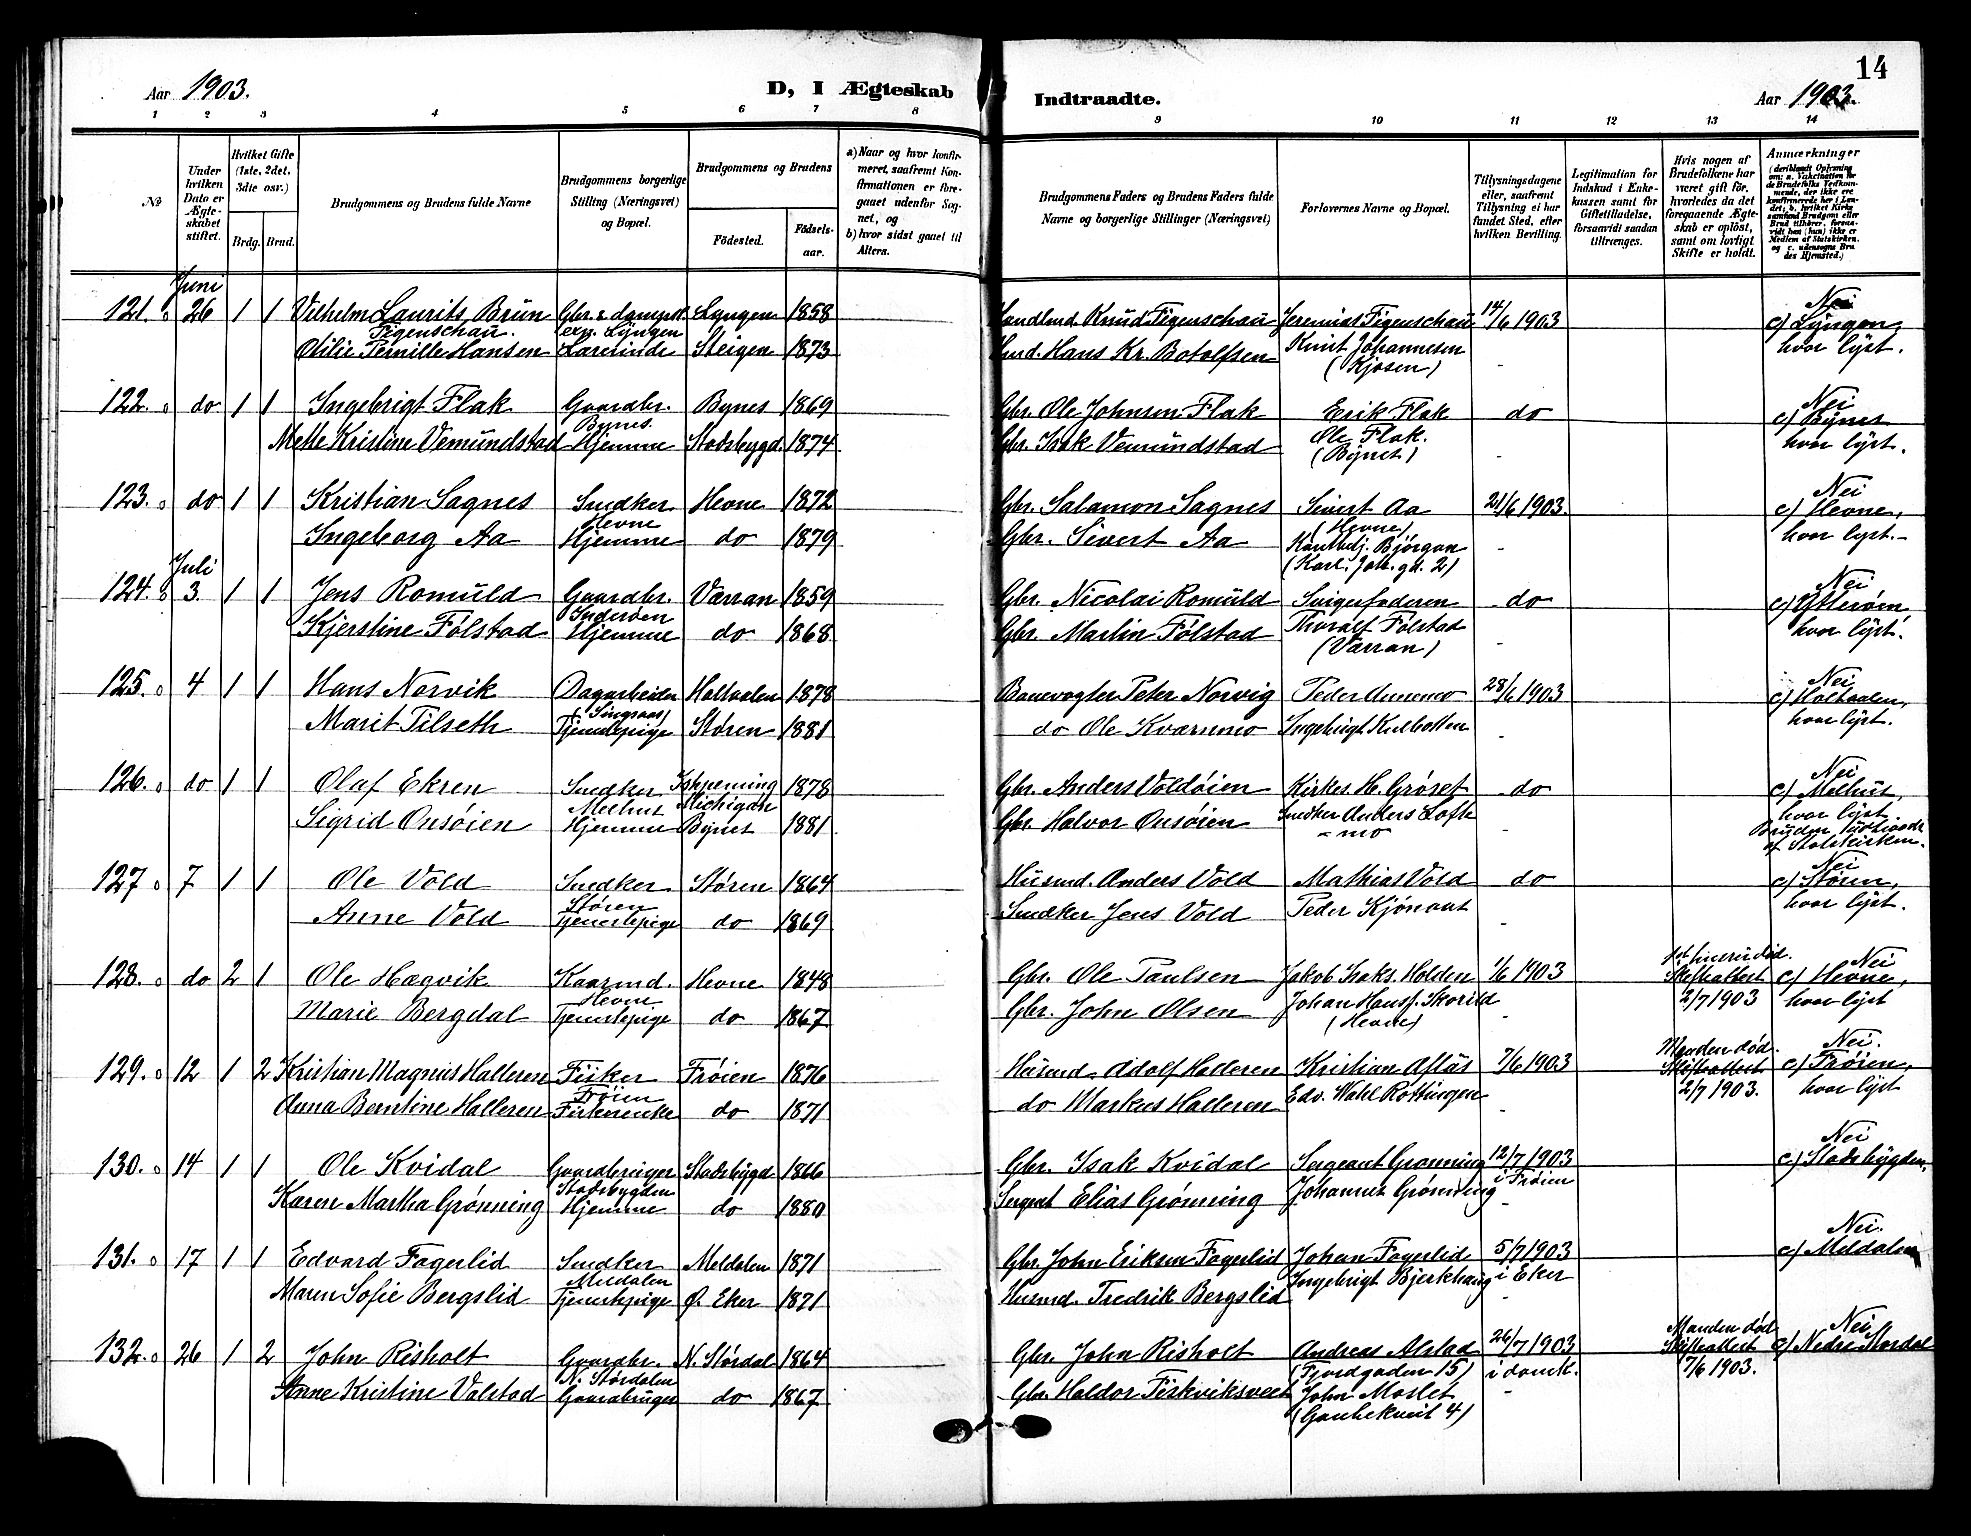 14
Aar 1903.
D, I Ægteskab Indtraadte.
Aar 1903.
1 2 3 4 5 6 7 8 9 10 11 12 13 14
No
Under hvilken Dato er Ægteskabet stiftet.
Hvilket Gifte (1ste, 2det, 3die osv.)
Brdg. Brud.
Brudgommens og Brudens fulde Navne
Brudgommens borgerlige Stilling (Næringsvei) og Bopæl.
Brudgommens og Brudens
Fødested. Fødselsaar.
a) Naar og hvor konfirmeret, saafremt Konfirmationen er foregaaet udenfor Sognet, og
b) hvor sidst gaaet til Alters.
Brudgommens Faders og Brudens Faders fulde Navne og borgerlige Stillinger (Næringsvei)
Forlovernes Navne og Bopæl.
Tillysningsdagene eller, saafremt Tillysning ei har fundet Sted, efter hvilken Bevilling.
Legitimation for Indskud i Enkekassen samt for Giftetilladelse, forsaavidt saadan tiltrænges.
Hvis nogen af Brudefolkene har været gift før, hvorledes da det foregaaende Ægteskab er opløst, samt om lovligt Skifte er holdt.
Anmærkninger
Juni
121. 26 1 1 Vilhelm Laurits Brun Gbr. & dampsk. Lyngen 1858 Handlmd. Knud Figenschau Jeremias Figenschau 14/6 1903 Nei
Figenschau. exp. Lyngen Knut Johannesen c) Lyngen,
Otilie Pernille Hansen Lærerinde Steigen 1873 Husmd. Hans Kr. Botolfsen (Kjosen) - hvor lyst.
122. do 1 1 Ingebrigt Flak Gaardbr. Bynes 1869 Gbr. Ole Johnsen Flak Erik Flak do Nei
Bynes. Ole Flak. c) Bynes
Mette Kristine Vemundstad Hjemme Stadsbygd. 1874 Gbr. Isak Vemundstad (Bynet) - hvor lyst.
123. do 1 1 Kristian Sagnes Snedker Hevne 1872 Gbr. Salamon Sagnes Sivert Aa 21/6 1903. Nei
Hevne (Hevne) c) Hevne,
Ingeborg Aa Hjemme do 1879 Gbr. Sivert Aa Bjørgan - hvor lyst.
(Karl. Joh. gd. 2)
Juli
124. 3. 1 1 Jens Romuld Gaardbr. Værran 1859 Gbr. Nicolai Romuld Svigerfaderen do Nei
Inderøen Thoralf Følstad c) Ytterøen
Kjerstine Følstad Hjemme do 1868 Gbr. Martin Følstad (Værran) - hvor lyst.
125. 4 1 1 Hans Norvik Dagarbeider Holtaalen 1878 Banevogter Peter Norvig Peder Aunemo 28/6 1903 Nei
(Singsaas) c) Holtaalen,
Marit Tilseth Tjenestepige Støren 1881 do Ole Kværnmo - hvor lyst.
126. do 1 1 Olaf Ekren Snedker Ishpeming 1878 Gbr. Anders Voldøien Kirkes. H. Grøset do Nei
Melhus Michigan c) Melhus,
Sigrid Onsøien Hjemme Bynet 1881 Gbr. Halvor Onsøien Snedker Anders Lofte - hvor lyst
-mo Bruden udtraadt
af Statskirken.
127. 7 1 1 Ole Vold Snedker Støren 1864 Husmd. Anders Vold Mathias Vold do Nei
Støren c) Støren,
Anne Vold Tjenestepige do 1869 Snedker Jens Vold Peder - hvor lyst.
128. do 2 1 Ole Hægvik Kaarmd. Hevne 1848 Gbr. Ole Paulsen Jakob Isaks. Holden 1/6 1903 1st hustru død. Nei
Hevne Skifteattest c) Hevne,
Marie Bergdal Tjenestepige do 1867 Gbr. John Olsen Johan (Hevne) - 2/7 1903 hvor lyst
129. 12 1 2 Kristian Magnus Halleren Fisker Frøien 1876 Husmd. Adolf Halleren Kristian Aftås 7/6 1903 Manden død. Nei.
Frøien Skifteattest c) Frøien,
Anna Berntine Halleren Fiskerenke do 1871 do Markus Halleren Edv. Wahl Røttingen - 2/7 1903. hvor lyst
130. 14 1 1 Ole Kvidal Gaardbruger Stadsbygd 1866 Gbr. Isak Kvidal Sergeant Grønning 12/7 1903 Nei
Stadsbygden i Frøien c) Stadsbygden,
Karen Martha Grønning Hjemme do 1880 Sergent Elias Grønning Johannes Grønning -
131. 17 1 1 Edvard Fagerlid Snedker Meldalen 1871 Gbr. John Eriksen Fagerlid Johan Fagerlid 5/7 1903 Nei.
Meldalen i Eker c) Meldalen
Maren Sofie Bergslid Tjenestepige Ø. Eker 1871 Husmd. Fredrik Bergslid Ingebrigt Bjerkhaug -
132. 26 1 2 John Risholt Gaardbr. N. Størdal 1864 Gbr. John Risholt Andreas Alstad 26/7 1903 Manden død Nei
N. Størdalen (Fjordgaden 15) i domk. Skifteattest c) Nedre Størdal
Anne Kristine Valstad do 1867 Gbr. Haldor John Moslet - 7/6 1903.
4)